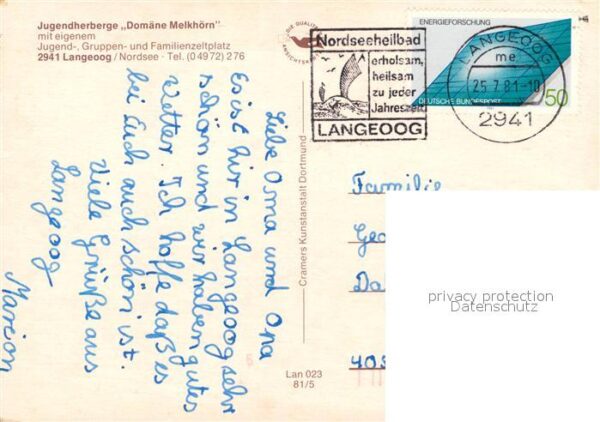 Jugendherberge „Domäne Melkhörn"
mit eigenem
Jugend-, Gruppen- und Familienzeltplatz
2941 Langeoog / Nordsee · Tel. (0 49 72) 276
Liebe Oma und Opa
Es ist hir in Langeoog sehr
schön und wir haben gutes
Wetter. Ich hoffe daß es
bei Euch auch schön ist.
Viele Grüße aus
Langeoog
Marion
Cramers Kunstanstalt Dortmund
Lan 023
81/5
DIE QUALITÄTS
Nordseeheilbad
erholsam,
heilsam
zu jeder
Jahreszeit
LANGEOOG
ENERGIEFORSCHUNG
DEUTSCHE BUNDESPOST
50
LANGEOOG
me
25.7.81-10
2941
Familie
Ge
Da
405
privacy protection
Datenschutz